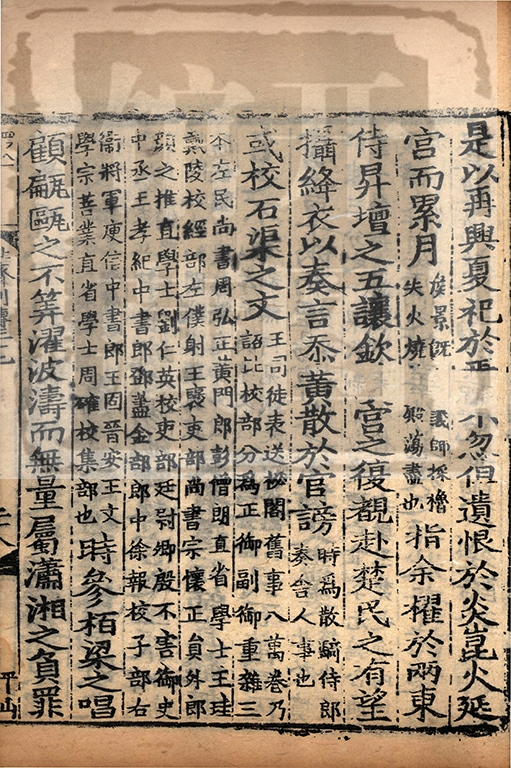 是以再興夏祀於 不忽但遺恨於炎崑火延
宮而累月侯景既 我師採穭
失火燒 殿蕩盡也指余櫂於兩東
侍昇壇之五讓欽 官之復覩赴楚民之有望
攝絳衣以奏言忝黃散於官謗時為散騎侍郎
奏舍人事也
或校石渠之文王司徒表送祕閣舊事八萬卷乃
詔比校部分為正御副御重雜三
本左民尚書周弘正黃門郎彭僧朗直省學士王珪
戴陵校經部左僕射王褒吏部尚書宗懷正員外郎
顏之推直學士劉仁英校史部廷尉卿殷不害御史
中丞王孝紀中書郎鄧藎金部郎中徐報校子部右
衛將軍庾信中書郎王固晉安王文
學宗善業直省學士周確校集部也時參柏梁之唱
顧甂甌之不筭濯波濤而無量屬瀟湘之負罪
平山